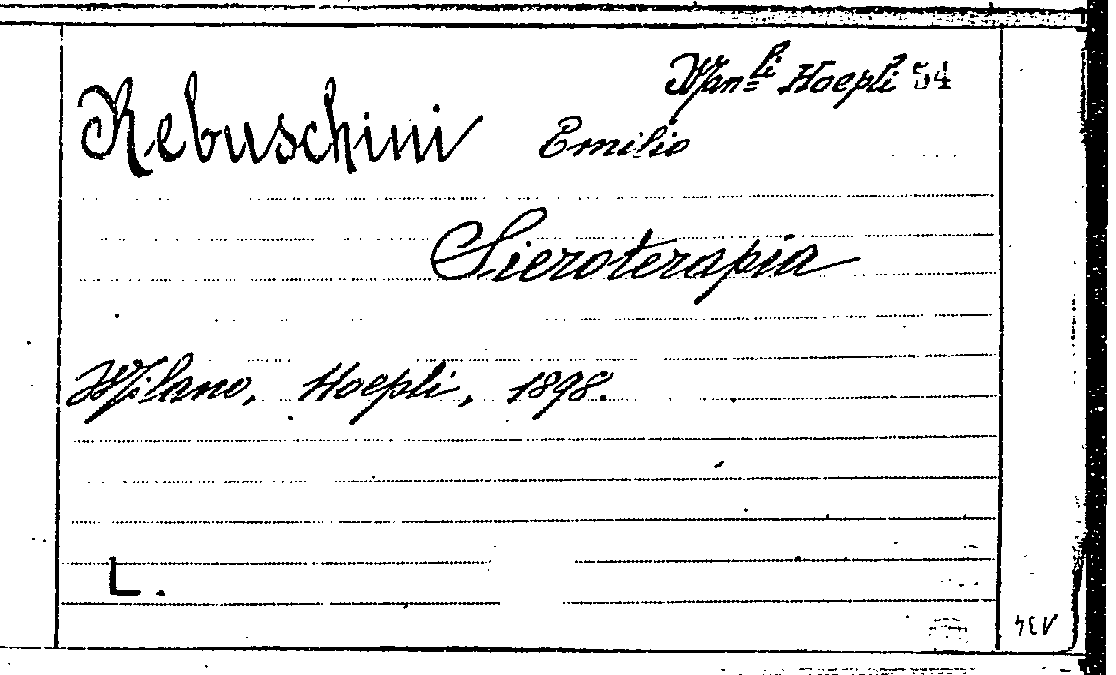 Man.li Hoepli 54
Rebuschini Emilio
Sieroterapia
Milano, Hoepli, 1898.
L.
134